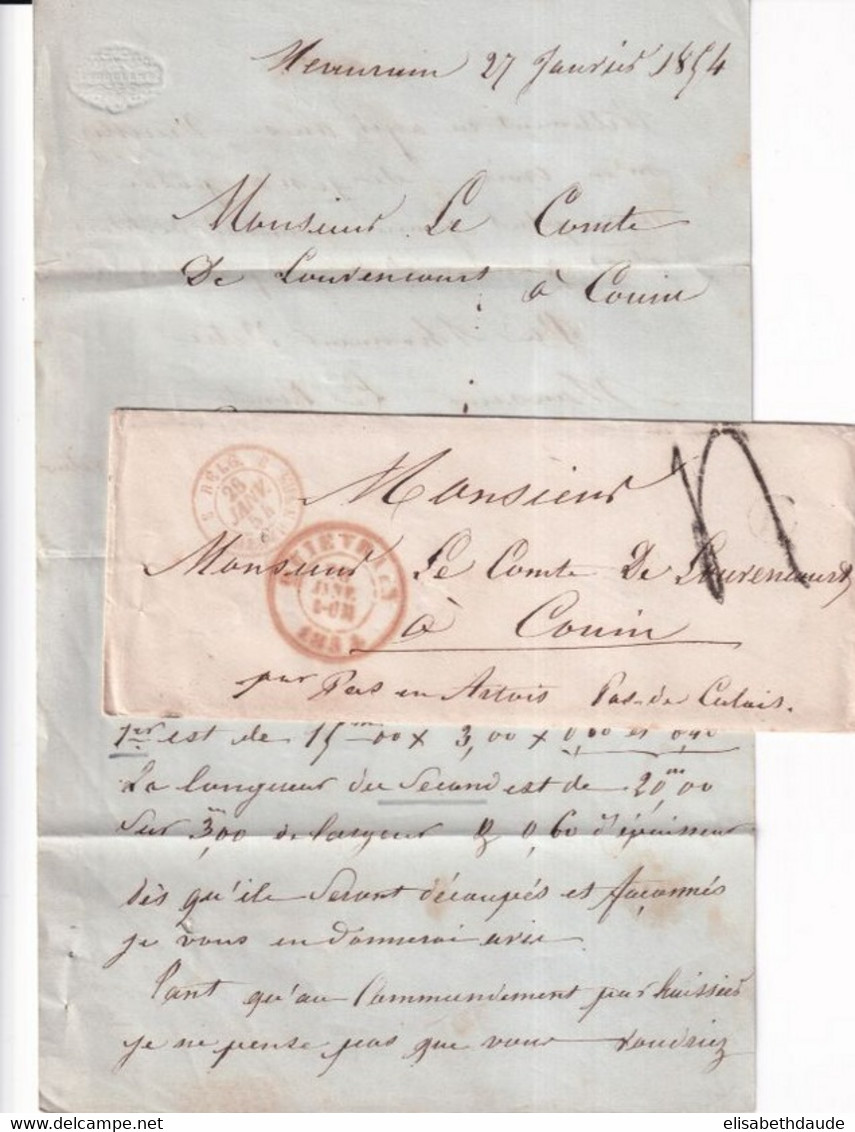 27 Janvier 1854
Monsieur Le Comte
De Louvencourt
à Couin
Monsieur
Monsieur Le Comte De Louvencourt
à Couin
par Pas en Artois Pas-de Calais.
BELG.
28
JANV.
54
1854
1er est de 15m 00 x 3,00 x 0,60 et 0,40
La longueur du Second est de 20,m00
Sur 3,m00 de largeur & 0,60 d'épaisseur
dès qu'ils Seront découpés et façonnés
je vous en donnerai avis.
Tant qu'au Commandement par huissier
je ne pense pas que vous voudriez
elisabethdaude